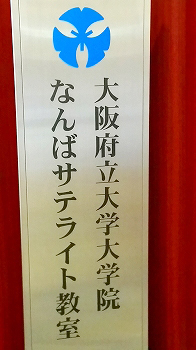 大阪府立大学大学院
なんばサテライト教室